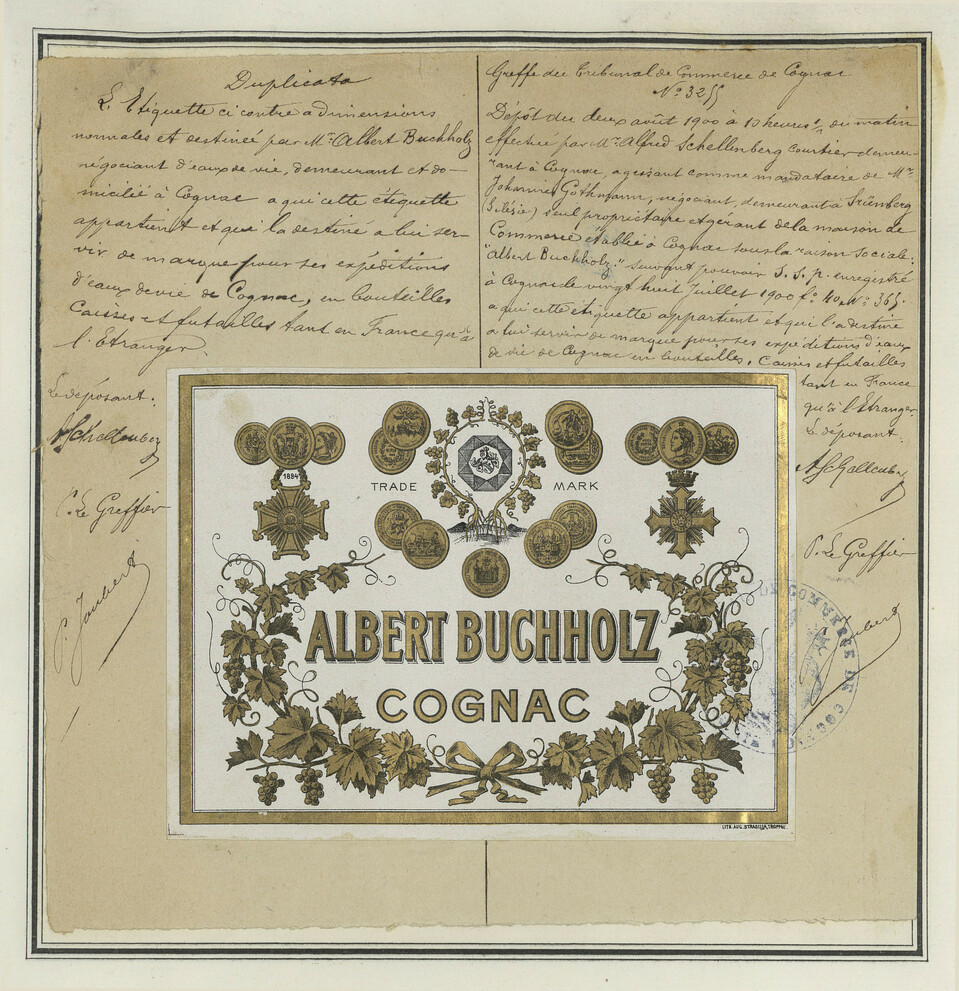 Duplicata
L'Etiquette ci contre a dimensions
normales et destinée par Mr Albert Buchholz
négociant d'eaux de vie, demeurant et do-
micilié à Cognac a qui cette étiquette
appartient et qui la destine a lui ser-
vir de marque pour ses expéditions
d'eaux de vie de Cognac, en bouteilles
Caisses et futailles tant en France qu'à
l'Etranger.
Le déposant.
A Schellenberg
P. Le Greffier
P. Joubert
Greffe du Tribunal de Commerce de Cognac
No 3255
Dépôt du deux août 1900 à 10 heures du matin
effectué par Mr Alfred Schellenberg courtier demeu-
rant à Cognac, agissant comme mandataire de Mr
Johannes Gothmann, négociant, demeurant à Grünberg
(Silésie) seul propriétaire et gérant de la maison de
Commerce établie à Cognac sous la raison sociale:
"Albert Buchholz," suivant pouvoir S. S. p. enregistré
à Cognac le vingt huit Juillet 1900 fo 40 No 365.
a qui cette étiquette appartient et qui l'a destine
a lui servir de marque pour ses expéditions d'eaux
de vie de Cognac en bouteilles, Caisses et futailles
tant en France
qu'à l'Etranger.
Le déposant.
A Schellenberg
P. Le Greffier
Joubert
1884
TRADE MARK
ALBERT BUCHHOLZ
COGNAC
LITH. AUG. STRASILLA, TROPPAU.
DE COMMERCE DE COGNAC